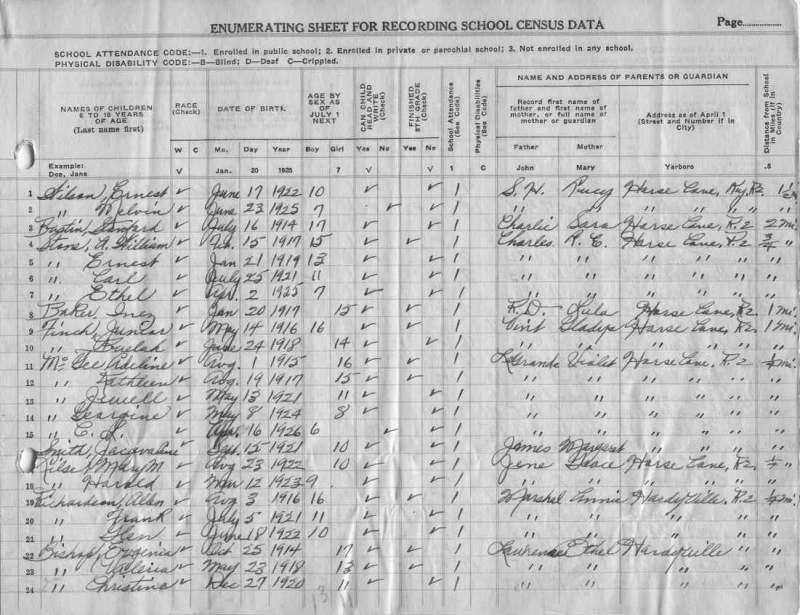 ENUMERATING SHEET FOR RECORDING SCHOOL CENSUS DATA Page
SCHOOL ATTENDANCE CODE:—1. Enrolled in public school; 2. Enrolled in private or parochial school; 3. Not enrolled in any school.
PHYSICAL DISABILITY CODE:—B—Blind; D—Deaf C—Crippled.
NAMES OF CHILDREN 6 TO 18 YEARS OF AGE (Last name first)
RACE (Check)
DATE OF BIRTH
AGE BY SEX AS OF JULY 1 NEXT
CAN CHILD READ AND WRITE (Check)
FINISHED 8TH GRADE (Check)
School Attendance (See Code)
Physical Disabilities (See Code)
NAME AND ADDRESS OF PARENTS OR GUARDIAN
Record first name of father and first name of mother, or full name of mother or guardian
Address as of April 1 (Street and Number if in City)
Distance from School in Miles (If in Country)
W C Mo. Day Year Boy Girl Yes No Yes No Father Mother
Example: Doe, Jane √ Jan. 20 1925 7 √ √ 1 C John Mary Yarboro .5
1 Ernest ✓ June 17 1922 10 ✓ ✓ 1 S. H. Horse Cave, Ky, R2. 1½
2 " Melvin ✓ June 23 1925 7 ✓ ✓ 1 " " " " " "
3 ✓ July 16 1914 17 ✓ ✓ 1 Charlie Sara Horse Cave, R.2 2 mi.
4 William ✓ Feb. 15 1917 15 ✓ ✓ 1 Charles R. E. Horse Cave, R2 ¾ "
5 " Ernest ✓ Jan 21 1919 13 ✓ ✓ 1 " " " " "
6 " Carl ✓ July 25 1921 11 ✓ ✓ 1 " " " " "
7 " Ethel ✓ Apr. 2 1925 7 ✓ ✓ 1 " " " " "
8 Baker, Inez ✓ Jan 20 1917 15 ✓ ✓ 1 R.D. Lula Horse Cave, R2. 1 mi.
9 Finch, Junior ✓ May 14 1916 16 ✓ ✓ 1 Gladys Horse Cave, R2. 1 mi.
10 " Beulah ✓ June 24 1918 14 ✓ ✓ 1 " " " " "
11 McGee ✓ Aug. 1 1915 16 ✓ ✓ 1 LaGrande Violet Horse Cave. R.2
12 " Kathleen ✓ Aug. 19 1917 15 ✓ ✓ 1 " " " " "
13 " Jewell ✓ May 13 1921 11 ✓ ✓ 1 " " " " "
14 " Georgine ✓ May 8 1924 8 ✓ ✓ 1 " " " " "
15 " ✓ Apr. 16 1926 6 ✓ ✓ 1 " " " " "
Smith, ✓ Sept. 15 1921 10 ✓ ✓ 1 James Margaret " " "
Mary M. ✓ Aug 23 1922 10 ✓ ✓ 1 Gene Grace Horse Cave, R2.
18 " Harold ✓ Mar 12 1923 9 ✓ ✓ 1 " " " " "
19 Richardson, Allen ✓ Aug 3 1916 16 ✓ ✓ 1 Marshel Annie Hardyville. R.2
20 " Frank ✓ July 5 1921 11 ✓ ✓ 1 " " " " "
21 " Glen ✓ June 18 1922 10 ✓ ✓ 1 " " " " "
22 Bishop, ✓ Oct 25 1914 17 ✓ ✓ 1 Lawrence Ethel Hardyville " " "
23 " ✓ May 23 1918 13 ✓ ✓ 1 " " " " "
24 " Christine ✓ Dec 27 1920 11 ✓ ✓ 1 " " " " "
13